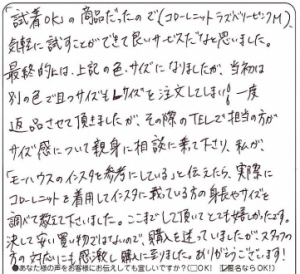 「試着OK」の商品だったので(コローレニットラズベリーピンクM)、
気軽に試すことができて良いサービスだなと思いました。
最終的には、上記の色・サイズになりましたが、当初は
別の色で且つサイズもLサイズと注文してしまい、一度
返品させて頂きましたが、その際のTELで担当の方が
サイズ感について親身に相談に乗て下さり、私が、
「モーハウスのインスタを参考にしている」と伝えたら、実際に
コローレニットを着用してインスタに載っている方の身長やサイズを
調べて教えて下さいました。ここまでして頂いてとても嬉しかったです。
決して安い買い物ではないので、購入を迷っていましたが、スタッフの
方の対応にも感激し購入に至りました。ありがとうございます!
●あなた様の声をお客様にお伝えしても宜しいですか?(□OK! ☑匿名ならOK!)